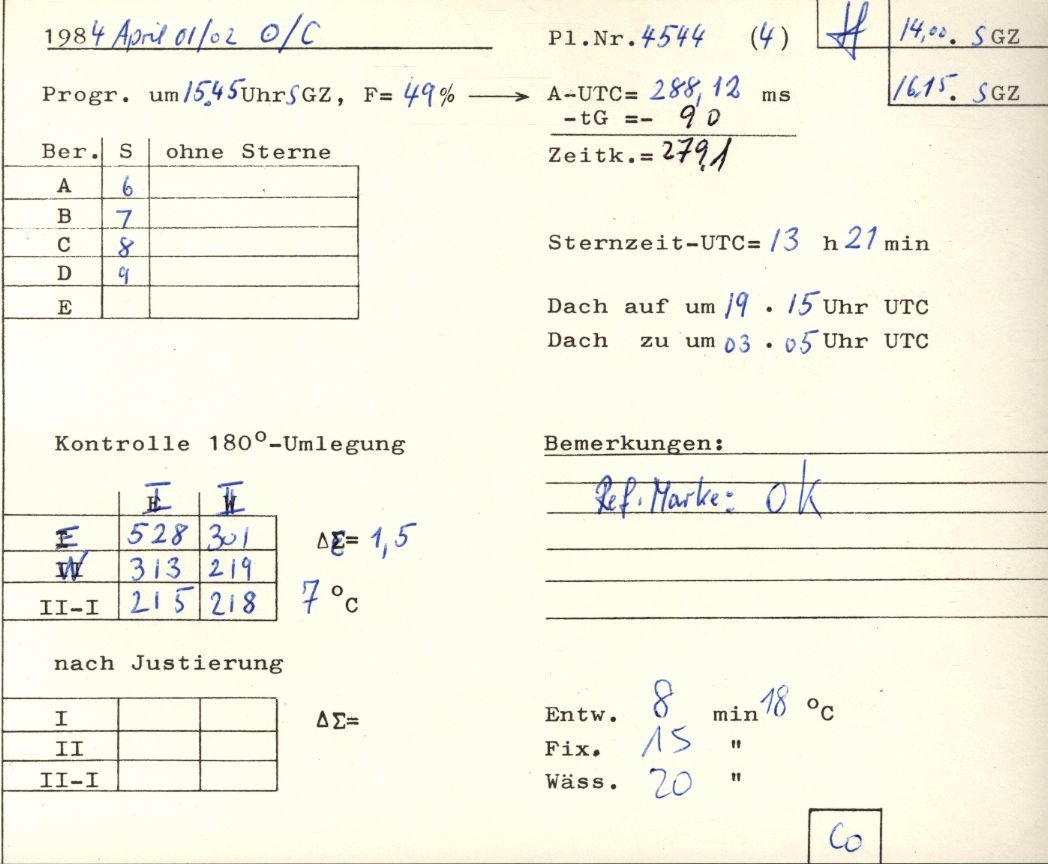 1984 April 01/02 O/C Pl.Nr. 4544 (4) 14,00. S GZ
Progr. um 15.45 Uhr S GZ, F= 49% → A-UTC= 288,12 ms 16.15. S GZ
-tG =- 9 0
Zeitk.= 279,1
Ber. S ohne Sterne
A 6
B 7
C 8
D 9
E
Sternzeit-UTC= 13 h 21 min
Dach auf um 19 . 15 Uhr UTC
Dach zu um 03 . 05 Uhr UTC
Kontrolle 180°-Umlegung
I II
E 528 301 ΔΣ= 1,5
W 313 219
II-I 215 218 7 °C
Bemerkungen:
Ref. Marke: OK
nach Justierung
I ΔΣ=
II
II-I
Entw. 8 min 18 °C
Fix. 15 "
Wäss. 20 "
Co